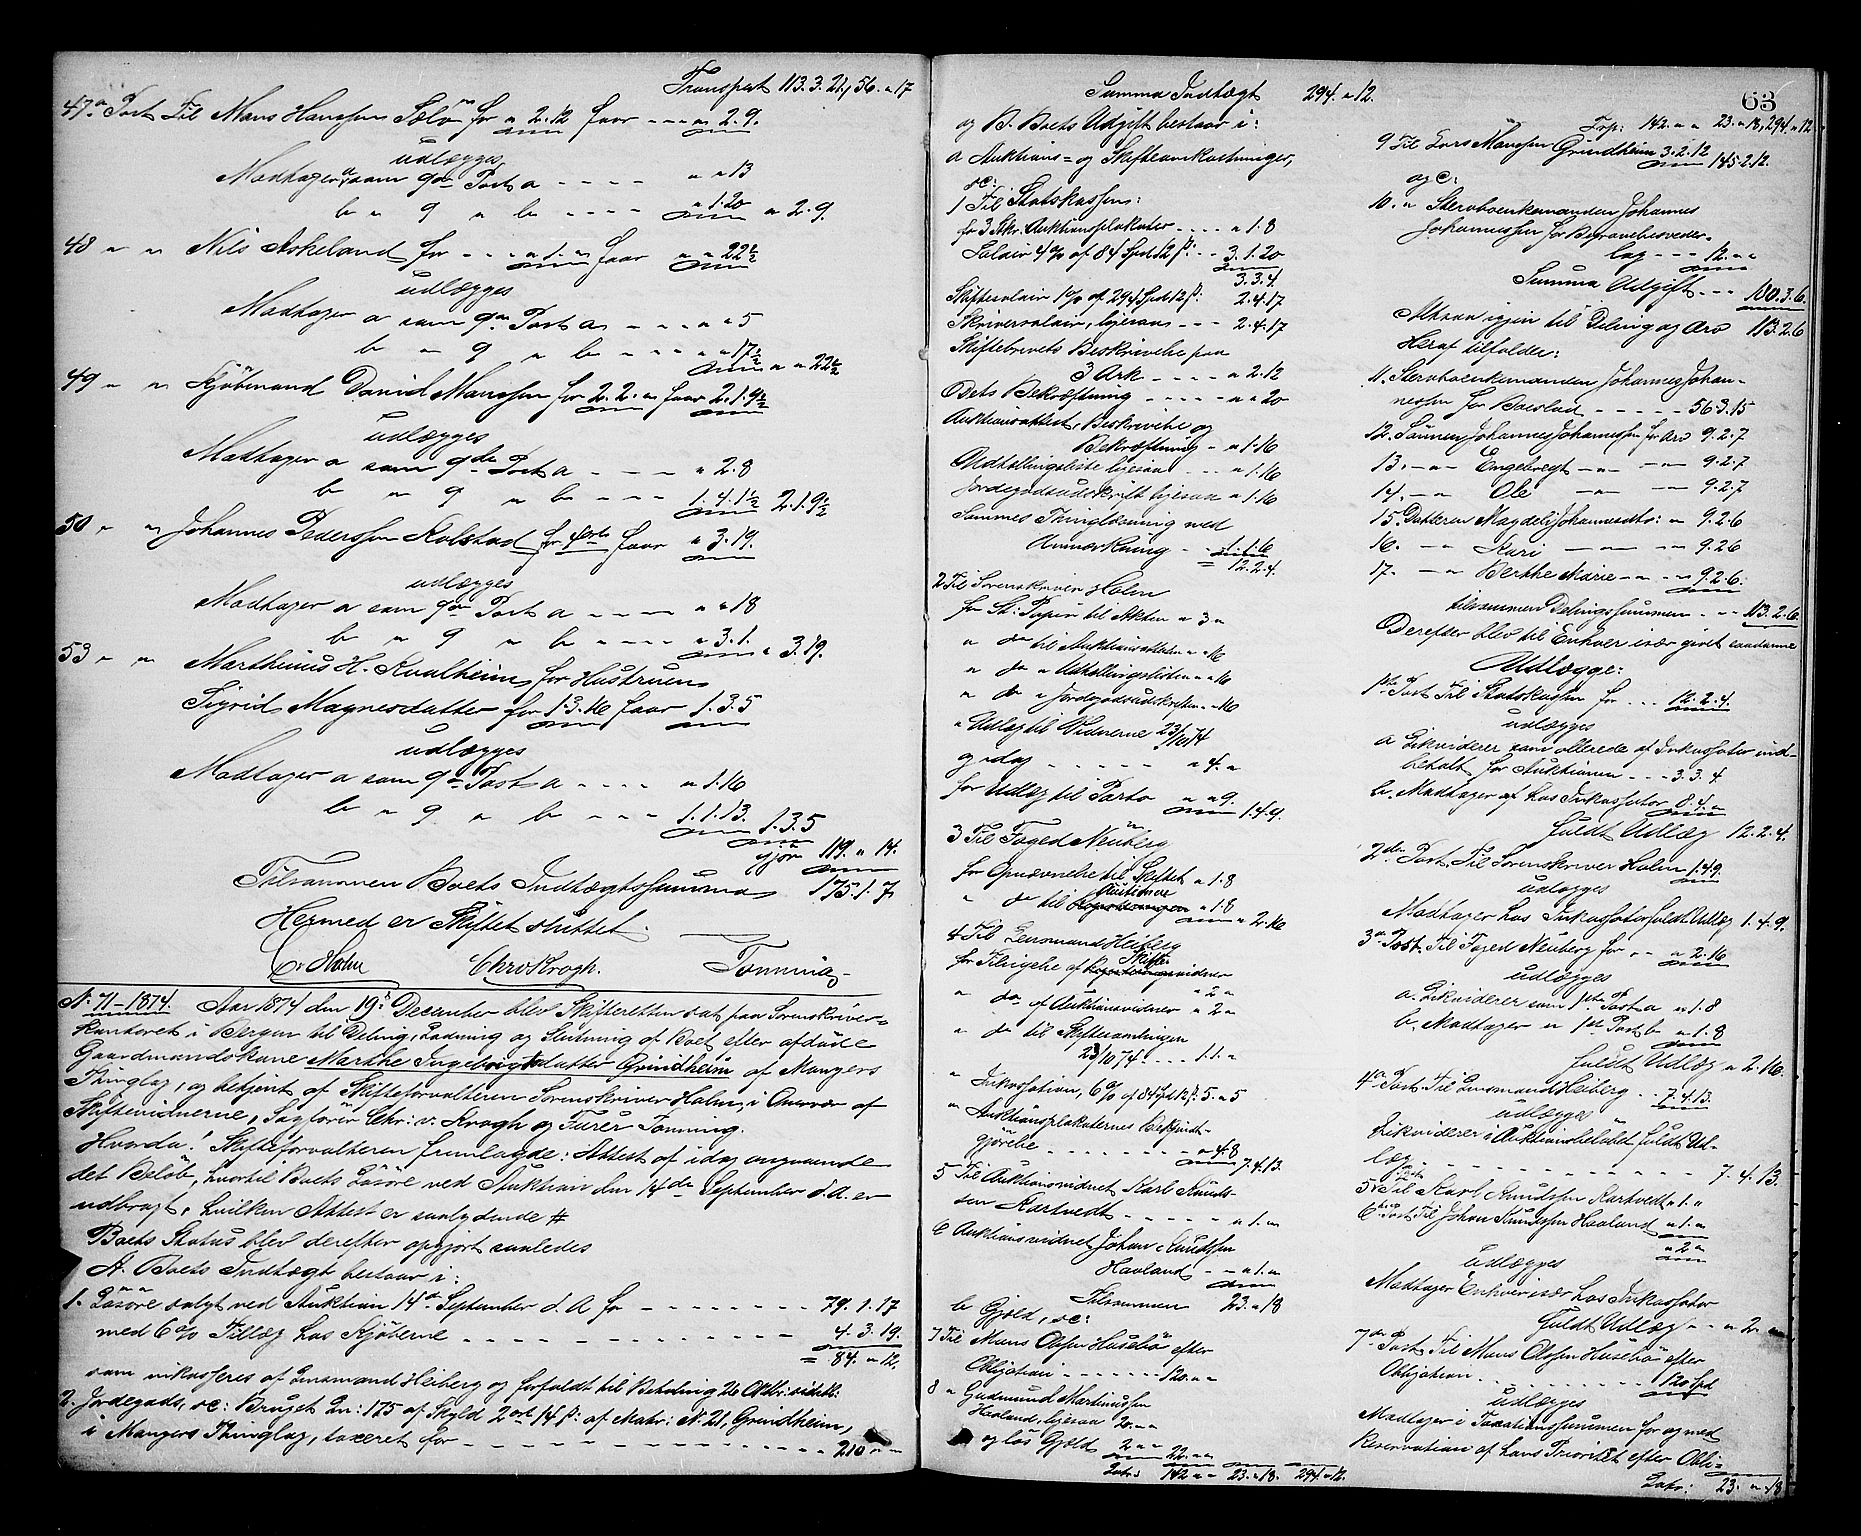 Transport 113.3.21, 56. " 17
47de Post Til Mons Hanssen Solv for " 2.12 faar - - " 2.9.
udlægges
Modtager a som 9de Post a - - - - " " 13
b " 9 " b - - - - " 1.20 " 2.9.
48 " " Nils Askeland for - - " 1. " faar " " 22½
udlægges
Modtager a som 9de Post a - - - - " " 5
b " 9 " b " " " " 17½ " " 22½
49 " " Kjøbmand David Monssen for 2.2. " faar 2.1.9½
udlægges
Modtager a som 9de Post a - - - " 2.8
b " 9 " b - - - 1.4.1½ 2.1.9½
50 " " Johannes Pederssen Kolstad for 4ort faar " 3.19.
udlægges
Modtager a som 9de Post a - - - - " " 18
b " 9 " b - - - - " 3.1. " 3.19.
53 " " Marthinus H. Kvalheim for Hustruen
Sigrid Magnesdatter for 1.3.16 faar 1.3.5
udlægges
Modtager a som 9de Post a - - - - " 1.16
b " 9 " b - - - 1.1.13. 1.3.5
gjør 119. " 14.
Tilsammen Boets Indtægtssumma 175.1.7
Hermed er Skiftet sluttet.
Holm Chr v Krogh. Tonning
N. 71-1874. Aar 1874 den 19de December blev Skifteretten sat paa Sorenskriver-
kontoret i Bergen til Deling, Lodning og Slutning af Boet efter afdøde
Gaardmandskone Marthe Ingebrigtsdatter Grindheim af Mangers
Thinglag, og betjent af Skifteforvalteren Sorenskriver Holm, i Overvær af
Skiftevidnerne, Sagfører Chr: v. Krogh og Furer Tonning.
Hvorda! Skifteforvalteren fremlagde: Attest af idag angaaende
det Beløb, hvortil Boets Løsøre ved Auktion den 14de September d. A. er
udbragt, hvilken Attest er saalydende #
Boets Status blev derefter opgjort saaledes
A. Boets Indtægt bestaar i:
1. Løsøre solgt ved Auktion 14de September d. A for - - - - - 79.1.17
med 6% Tillæg hos Kjøberne - - - - - - - - 4.3.19.
= 84. " 12.
som inkasseres af Lensmand Heiberg og forfaldt til Betaling 26 Oktbr: sidstl:
2. Jordegods, sc: Bruget Ln: 175 af Skyld 2 ort 14 ß: af Matr: N. 21, Grindheim,
i Mangers Thinglag, taxeret for - - - - - - - - 210 " "
Summa Indtægt 294. " 12.
og B. Boets Udgift bestaar i:
a Auktions= og Skifteomkostninger,
sc:
1 Til Statskassen:
for 3 Skr. Auktionsplakater - - - - " 1.8
Salair 4% af 84 Spd 12 ß: - - 3.1.20
3.3.4.
Skiftesalair 1% af 294 Spd 12 ß: 2.4.17
Skriversalair, ligesaa - - - 2.4.17
Skiftebrevets Beskrivelse paa
3 Ark - - - - " 2.12
Dets Bekræftning - - - - - " " 20
Auktionsattest, Beskrivelse og
Bekræftning - " 1.16
Udtællingsliste ligesaa - - - " 1.16
Jordegodsudskrift ligesaa " 1.16
Sammes Thinglæsning med
Anmærkning - - 1.1.6
= 12.2.4.
2 Til Sorenskriver Holm
for St: Papir til Akten " 3 "
" do til Auktionsattesten " " 16
" do " Udtællingslisten " " 16
" do " Jordegodsudskriften " " 16
" Udlæg til Vidnerne 23/10 74
og idag - - - - - " 4. "
for Udlæg til Porto " " 9. 1.4.9.
3 Til Foged Neuberg
for Opnævnelse til Skiftet " 1.8
" do til Auktioner " 1.8 " 2.16
4 Til Lensmand Heiberg
for Tilsigelse af Skiftevidner " 2 "
" do af Auktionsvidner " 2 "
" do til Skiftesamlingen
23/10 74. . . . 1.1. "
" Inkassation, 6% af 84 Spd 12 ß. 5. " 5
" Auktionsplakaternes Bekjendt-
gjørelse - - - - - - - " 4.8 7.4.13.
5 Til Auktionsvidnet Karl Knuds-
sen Kartvedt - - - - - " 1. "
6 Auktionsvidnet Johan Knudssen
Havland - - " 1. "
Tilsammen 23. " 18
b Gjeld, sc:
7 Til Mons Olssen Husebø efter
Obligation - - - - - - 120. " "
8 " Gudmund Martinussen
Havland, ligesaa 20. " "
" og løs Gjeld 2 " " 22. " "
Lats: 142 " " 23. " 18. 294. " 12.
63
Trp: 142. " " 23. " 18, 294. " 12
9 Til Lars Monssen Grindheim 3.2.12 145.2.12.
og c:
10. " Stervboenkemanden Johannes
Johannessen for Begravelsesveder-
lag - - - 12. " "
Summa Udgift - - - 180.3.6.
Altsaa igjen til Deling og Arv 113.2.6
Heraf tilfalder:
11. Stervboenkemanden Johannes Johan-
nessen for Boeslod - - - - - 56.3.15
12. Sønnen Johannes Johannessen for Arv 9.2.7
13. - " - Engebregt - " - - " - 9.2.7
14. - " - Ole - " - - " - 9.2.7
15. Datteren Magdeli Johannesdtr: " 9.2.6
16. - " - Kari - " - - " - 9.2.6
17. - " - Berthe Marie - " - - " - 9.2.6.
tilsammen Delingssummen - - - 113.2.6.
Derefter blev til Enhver især givet saadanne
Udlægge:
1ste Post Til Statskassen for . . . 12.2.4.
udlægges
a Likviderer som allerede af Inkassator ind-
beholdt for Auktionen - - - 3.3.4
b. Modtager af hos Inkassator 8.4. "
fuldt Udlæg 12.2.4.
2den Post Til Sorenskriver Holm 1.4.9.
udlægges
Modtager hos Inkassator fuldt Udlæg 1.4.9.
3de Post. Til Foged Neuberg for - - " 2.16
udlægges
a. Likviderer som 1ste Post a " 1.8
b. Modtager " 1ste Post b " 1.8
fuldt Udlæg " 2.16.
4de Post Til Lensmand Heiberg . . 7.4.13.
udlægges
Likviderer i Auktionsbeløbet fuldt Ud-
læg - - - - - - - - - - 7.4.13.
5te Post Til Karl Knudssen Kartvedt " 1. "
6te Post Til Johan Knudssen Havland " 1. "
" 2 "
Udlægges
Modtager Enhver især hos Inkassator
fuldt Udlæg - - " 2. "
7de Post Til Mons Olssen Husebø efter
Obligation . . . . . . . . . . 120 Spd
udlægges
Modtager i Taxationssummen for og med
Reservation af hans Prioritet efter Obli=
Lats: 23. " 18